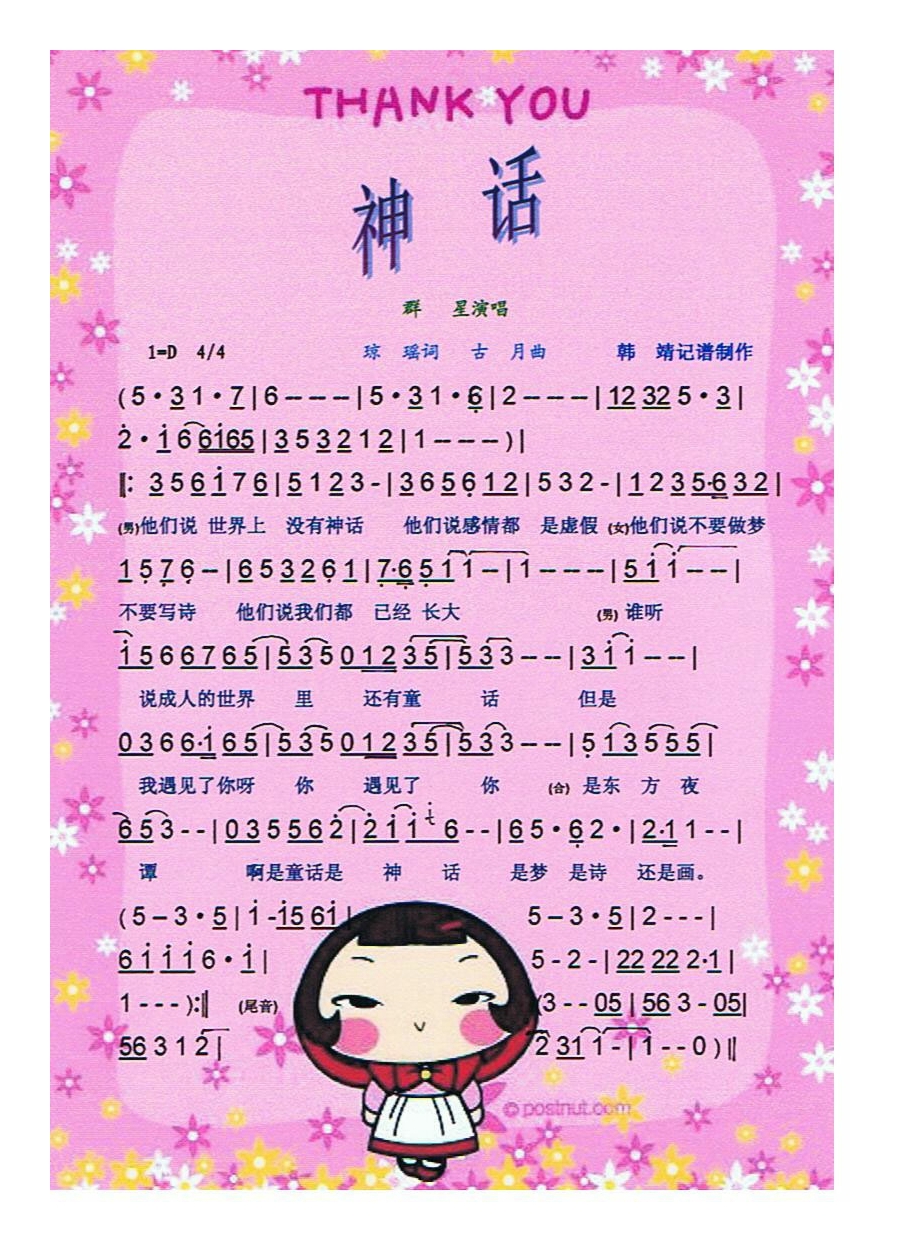 THANK YOU
神 话
群 星演唱
1=D 4/4 琼 瑶词 古 月曲 韩 靖记谱制作
(5·31·7|6---|5·31·6|2---|12 32 5·3|
2·i66i65|353212|1---)|
‖:356i76|5123-|365612|532-|1235·632|
(男)他们说 世界上 没有神话 他们说感情都 是虚假 (女)他们说不要做梦
1576--|653261|7·6511--|1---|5ii--|
不要写诗 他们说我们都 已经 长大 (男) 谁听
i566765|53501235|533--|3ii--|
说成人的世界 里 还有童 话 但是
0366·i65|53501235|533--|513555|
我遇见了你呀 你 遇见了 你 (合) 是东 方 夜
653--|035562|2ii6--|65·62·|2·11--|
谭 啊是童话是 神 话 是梦 是诗 还是画。
(5-3·5|i-i5 6i| 5-3·5|2---|
6iii6·i| 5-2-|22 22 2·1|
1---):‖ (尾音) (3--05|56 3-05|
56 3 1 2| 2 31 1-|1--0)‖
© postnut.com